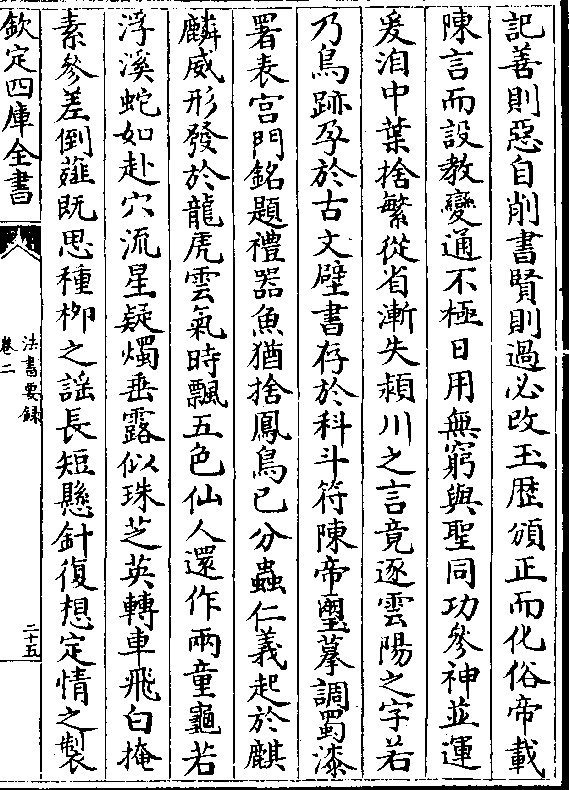 記善則惡自削書賢則過必改玉歴頒正而化俗帝載
陳言而設教變通不極日用無窮與聖同功參神並運
爰洎中葉捨繁從省漸失潁川之言竟逐雲陽之字若
乃鳥跡孕於古文壁書存於科斗符陳帝璽摹調蜀漆
署表宫門銘題禮器魚猶捨鳳鳥已分蟲仁義起於麒
麟威形發於龍虎雲氣時飄五色仙人還作兩童龜若
浮溪蛇如赴穴流星疑燭垂露似珠芝英轉車飛白掩
素參差倒薤既思種柳之謡長短懸針復想定情之製
欽定四庫全書
法書要録
卷二
二十五